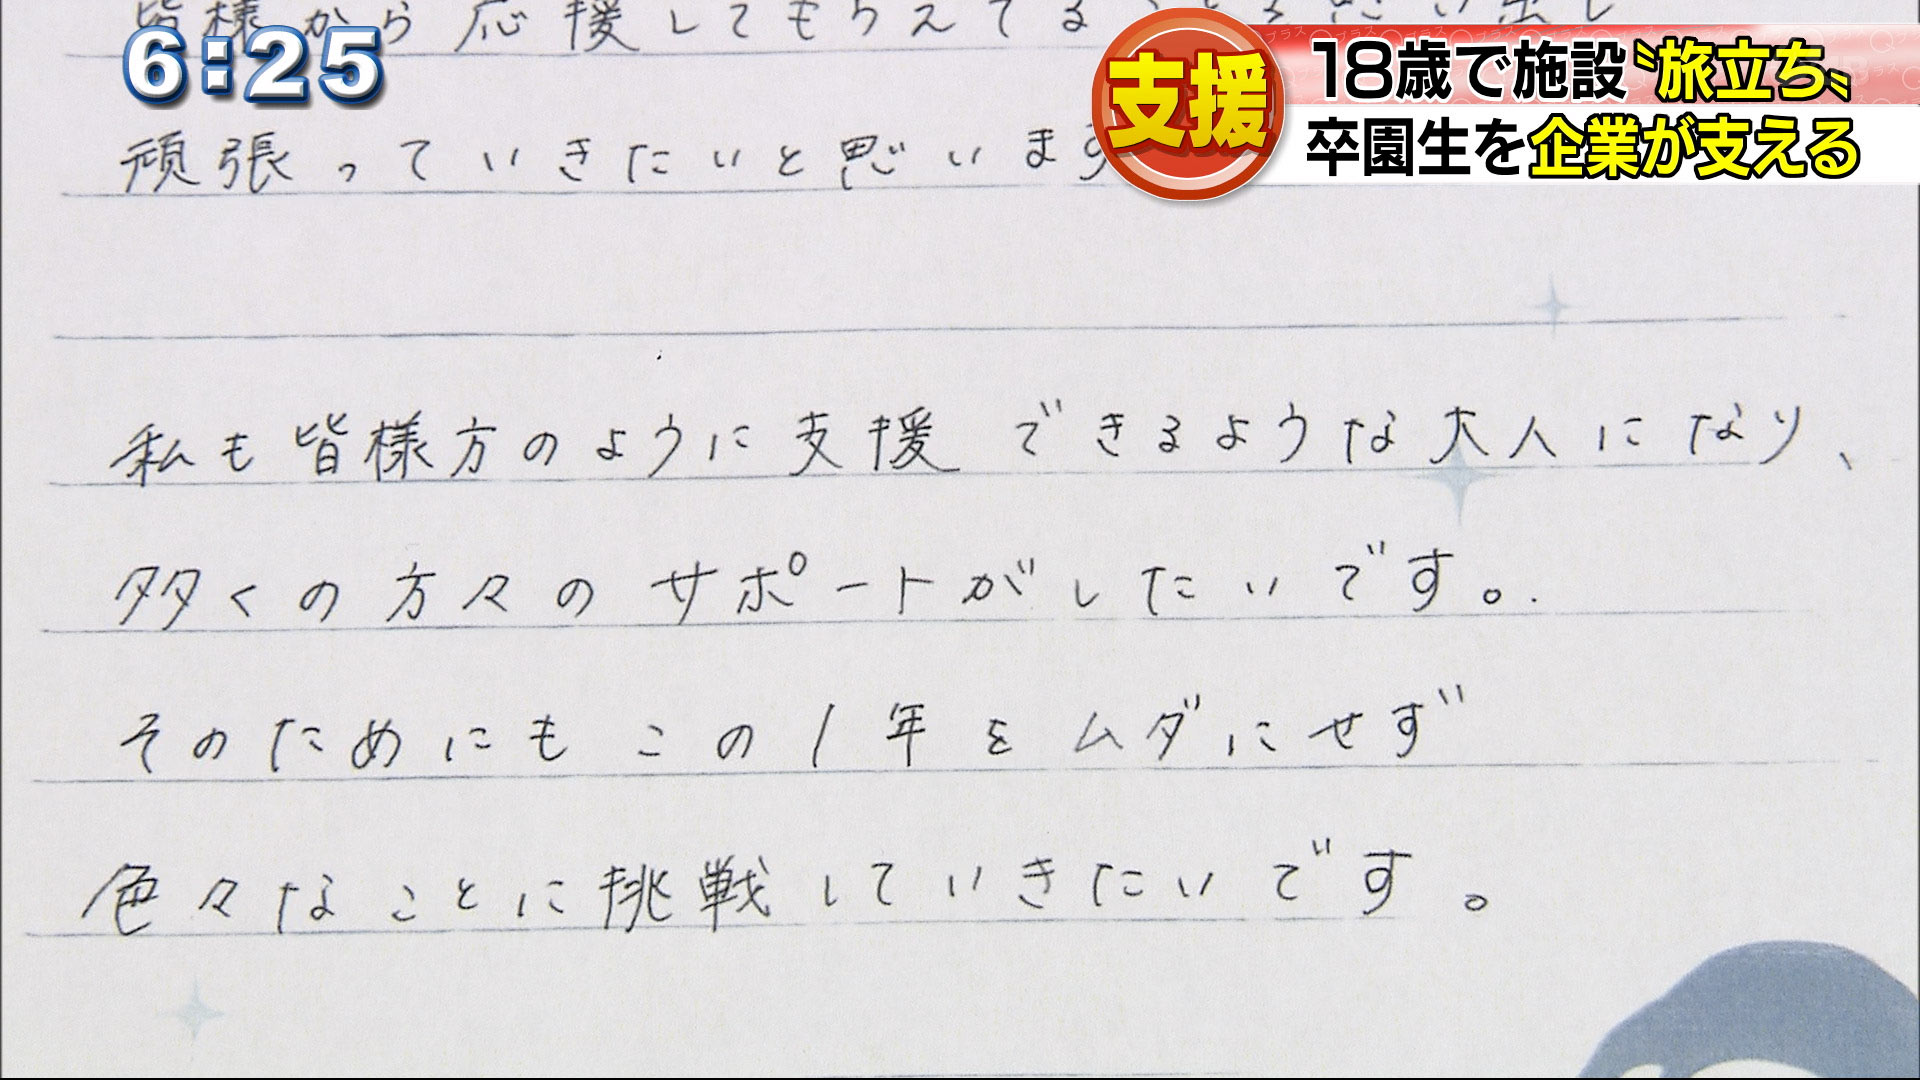 6:25
支援
18歳で施設〝旅立ち〟
卒園生を企業が支える
皆様から応援してもらえてる
頑張っていきたいと思います
私も皆様方のように支援できるような大人になり、
多くの方々のサポートがしたいです。
そのためにもこの1年をムダにせず
色々なことに挑戦していきたいです。